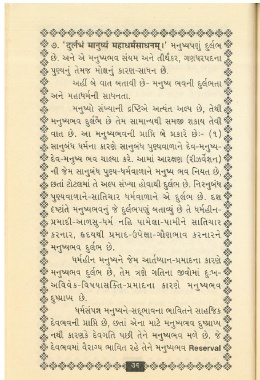 ૭. 'દુર્લભં માનુષ્યં મહાધર્મસાધનમ્।' મનુષ્યપણું દુર્લભ
છે. અને એ મનુષ્યભવ સંયમ અને તીર્થંકર, ગણધરપદના
પુણ્યનું તેમજ મોક્ષનું કારણ-સાધન છે.
અહીં બે વાત બતાવી છે- મનુષ્ય ભવની દુર્લભતા
અને મહાધર્મની સાધનતા.
મનુષ્યો સંખ્યાની દ્રષ્ટિએ અત્યંત અલ્પ છે, તેથી
મનુષ્યભવ દુર્લભ છે તેમ સામાન્યથી સમજી શકાય તેવી
વાત છે. આ મનુષ્યભવની પ્રાપ્તિ બે પ્રકારે છેઃ- (૧)
સાનુબંધ ધર્મના કારણે સાનુબંધ પુણ્યવાળાને દેવ-મનુષ્ય-
દેવ-મનુષ્ય ભવ ચાલ્યા કરે. આમાં આરક્ષણ (રીઝર્વેશન)
ની જેમ સાનુબંધ પુણ્ય-ધર્મવાળાને મનુષ્ય ભવ નિયત છે,
છતાં ટોટલમાં તે અલ્પ સંખ્યા હોવાથી દુર્લભ છે. નિરનુબંધ
પુણ્યવાળાને-સાતિચાર ધર્મવાળાને એ દુર્લભ છે. દશ
દ્રષ્ટાંતે મનુષ્યભવનું જે દુર્લભપણું બતાવ્યું છે તે ધર્મહીન-
પ્રમાદી-આળસુ-ધર્મ નહિ પામેલા-પામીને સાતિચાર
કરનાર, હૃદયથી પ્રમાદ-ઉપેક્ષા-ગૌણભાવ કરનારને
મનુષ્યભવ દુર્લભ છે.
ધર્મહીન મનુષ્યને જેમ આર્તધ્યાન-પ્રમાદના કારણે
મનુષ્યભવ દુર્લભ છે, તેમ ત્રણે ગતિના જીવોમાં દુઃખ-
અવિવેક-વિષયાસક્તિ-પ્રમાદના કારણે મનુષ્યભવ
દુષ્પ્રાપ્ય છે.
ધર્મસંપન્ન મનુષ્યને-સદ્ભાવના ભાવિતને સાહજિક
દેવભવની પ્રાપ્તિ છે, છતાં એના માટે મનુષ્યભવ દુષ્પ્રાપ્ય
નથી કારણકે દેવગતિ પછી તેને મનુષ્યભવ મળે છે. જે
દેવભવમાં વૈરાગ્ય ભાવિત રહે તેને મનુષ્યભવ Reserval